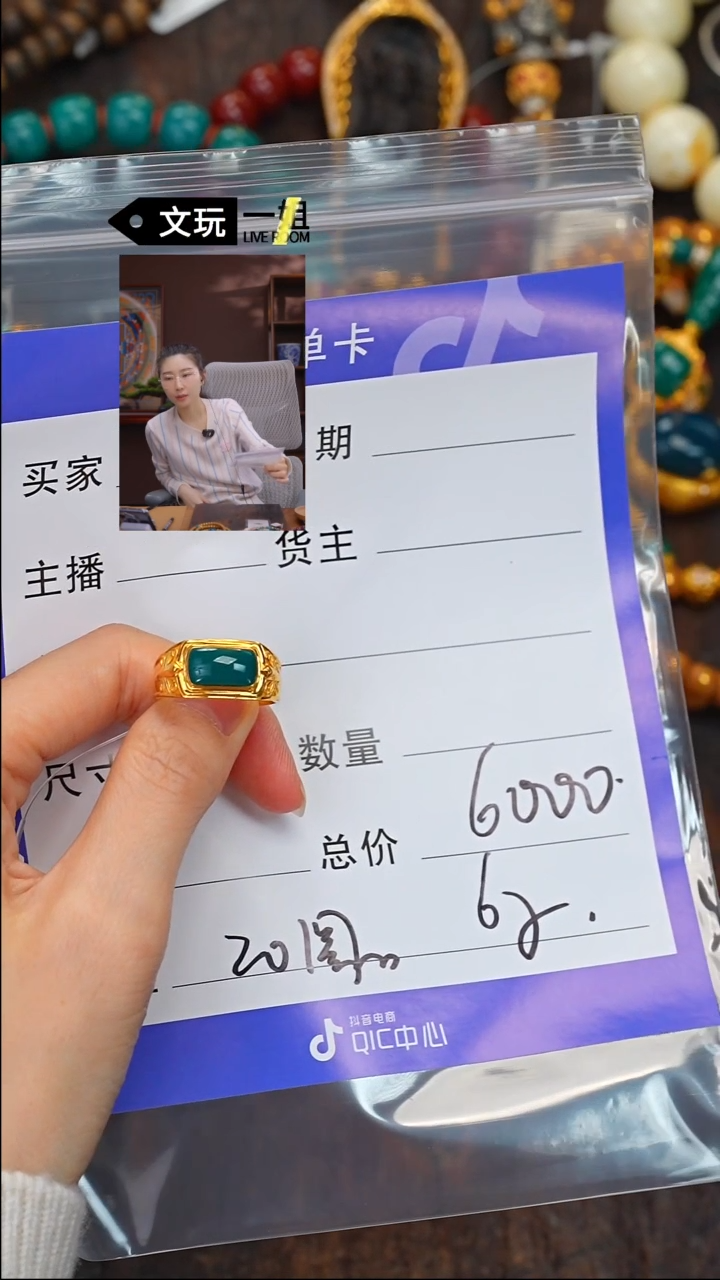 文玩
LIVE ROOM
单卡
买家 期
主播 货主
尺寸 数量
6000.
总价
6g.
20圈
抖音电商
QIC中心